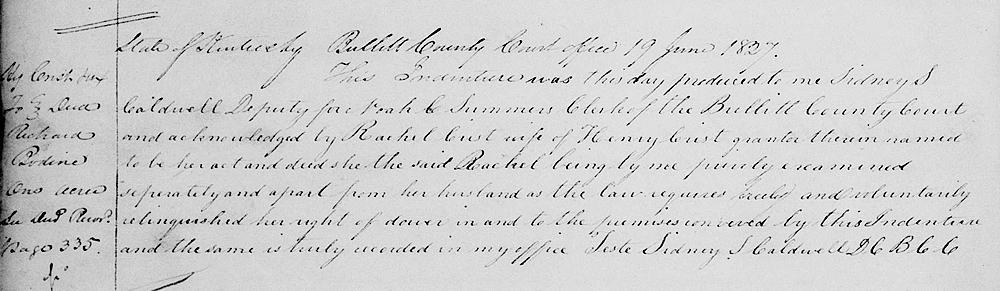 State of Kentucky Bullitt County Court office 19 June 1827.
This Indenture was this day produced to me Sidney S
Caldwell Deputy for Noah C Summers Clerk of the Bullitt County Court
and acknowledged by Rachel Crist wife of Henry Crist grantor therein named
to be her act and deed she the said Rachel being by me privily examined
seperately and apart from her husband as the law requires freely and voluntarily
relinquished her right of dower in and to the premises conveved by this Indenture
and the same is truly recorded in my office Teste Sidney S Caldwell D C B C C
Hy Crist &ux
To Deed
Richard
Bodine
One acre
See Deed Recor.
Page 335.